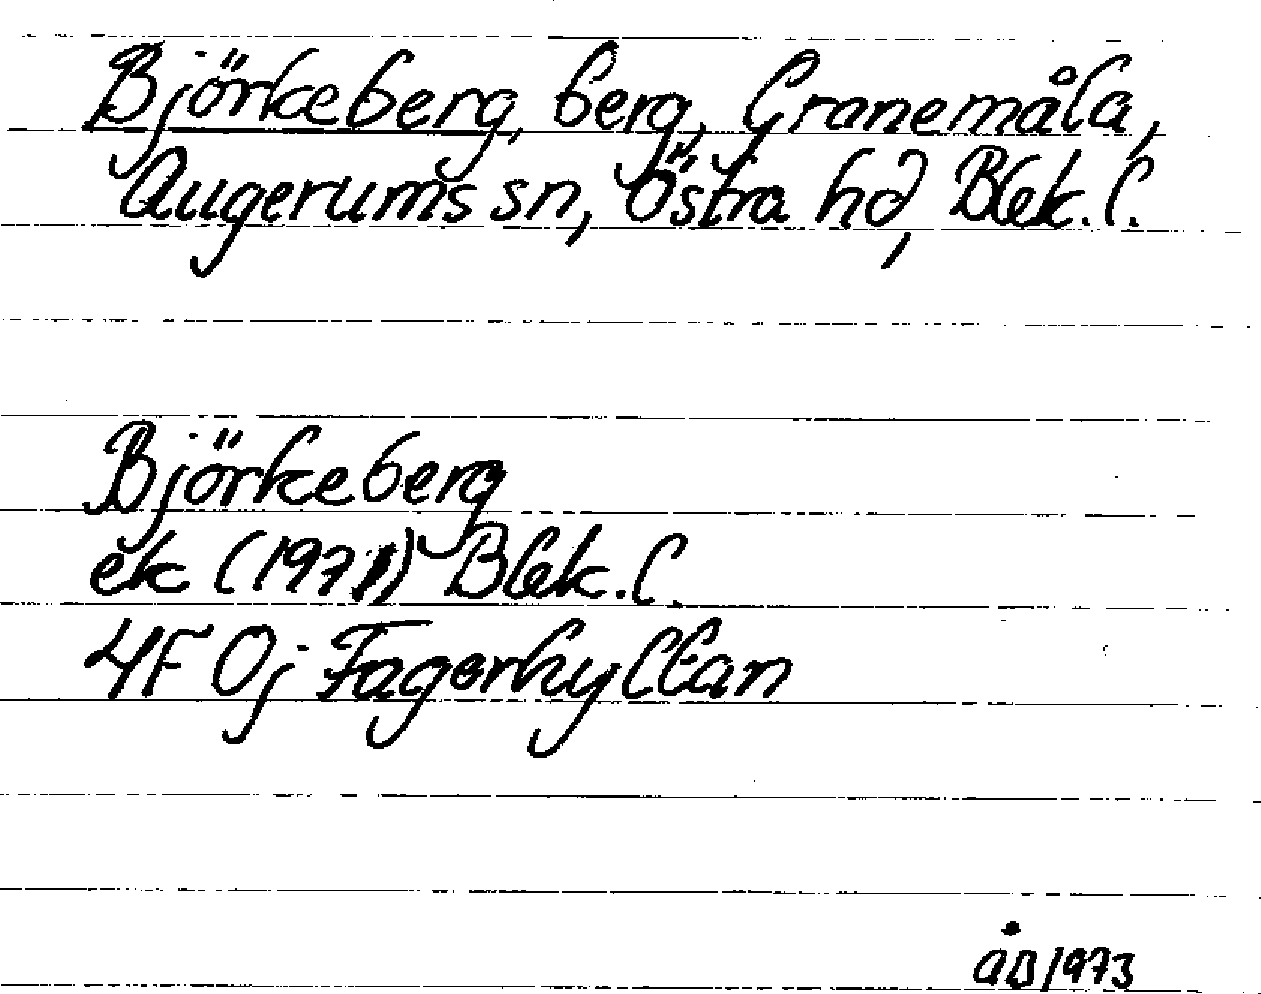 Björkeberg, berg, Granemåla,
Augerums sn, Östra hd, Blek. l.
Björkeberg
ek (1971) Blek. l.
4F 0j Fagerhyltan
ÅB 1973